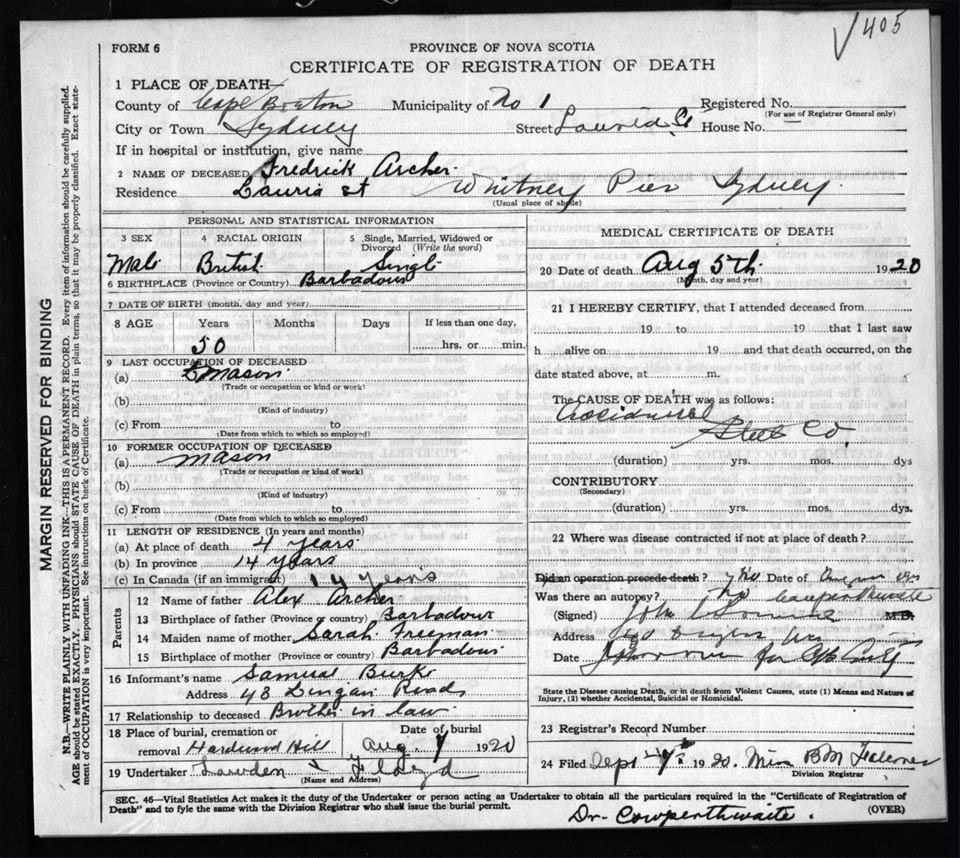 √405
FORM 6
PROVINCE OF NOVA SCOTIA
CERTIFICATE OF REGISTRATION OF DEATH
1 PLACE OF DEATH
County of Cape Breton Municipality of No 1 Registered No.
(For use of Registrar General only)
City or Town Sydney Street House No.
If in hospital or institution, give name
2 NAME OF DECEASED Fredrick Archer
Residence Lauris st Whitney Pier Sydney.
(Usual place of abode)
PERSONAL AND STATISTICAL INFORMATION
3 SEX 4 RACIAL ORIGIN 5 Single, Married, Widowed or Divorced (Write the word)
Male British Single
6 BIRTHPLACE (Province or Country) Barbadous
7 DATE OF BIRTH (month, day and year)
8 AGE Years Months Days If less than one day,
50 hrs. or min.
9 LAST OCCUPATION OF DECEASED
(a) Mason
(Trade or occupation or kind of work)
(b)
(Kind of industry)
(c) From to
(Date from which to which so employed)
10 FORMER OCCUPATION OF DECEASED
(a) mason
(Trade or occupation or kind of work)
(b)
(Kind of industry)
(c) From to
(Date from which to which so employed)
11 LENGTH OF RESIDENCE (In years and months)
(a) At place of death 4 years
(b) In province 14 years
(c) In Canada (if an immigrant) 14 years
Parents
12 Name of father Alex Archer
13 Birthplace of father (Province or country) Barbadous
14 Maiden name of mother Sarah Freeman
15 Birthplace of mother (Province or country) Barbadous
16 Informant's name Samual Burke
Address 48 Lingan Road
17 Relationship to deceased Brother in law
18 Place of burial, cremation or removal Hardwood Hill Date of burial Aug 7 1920
19 Undertaker Lowden & Floyd
(Name and Address)
MEDICAL CERTIFICATE OF DEATH
20 Date of death Aug 5th 1920
(Month, day and year)
21 I HEREBY CERTIFY, that I attended deceased from
19 to 19 that I last saw
h alive on 19 and that death occurred, on the
date stated above, at m.
The CAUSE OF DEATH was as follows:
Accidental
Steel Co.
(duration) yrs. mos. dys
CONTRIBUTORY
(Secondary)
(duration) yrs. mos. dys.
22 Where was disease contracted if not at place of death?
Did an operation precede death? Date of
Was there an autopsy? no Cowperthwaite
(Signed) John M.D.
Address
Date for
State the Disease causing Death, or in death from Violent Causes, state (1) Means and Nature of
Injury, (2) whether Accidental, Suicidal or Homicidal.
23 Registrar's Record Number
24 Filed Sept 1920. Division Registrar
SEC. 46—Vital Statistics Act makes it the duty of the Undertaker or person acting as Undertaker to obtain all the particulars required in the "Certificate of Registration of
Death" and to fyle the same with the Division Registrar who shall issue the burial permit. (OVER)
Dr. Cowperthwaite.
MARGIN RESERVED FOR BINDING
N.B.—WRITE PLAINLY WITH UNFADING INK—THIS IS A PERMANENT RECORD. Every item of information should be carefully supplied.
AGE should be stated EXACTLY. PHYSICIANS should STATE CAUSE OF DEATH in plain terms, so that it may be properly classified. Exact state-
ment of OCCUPATION is very important. See instructions on back of Certificate.